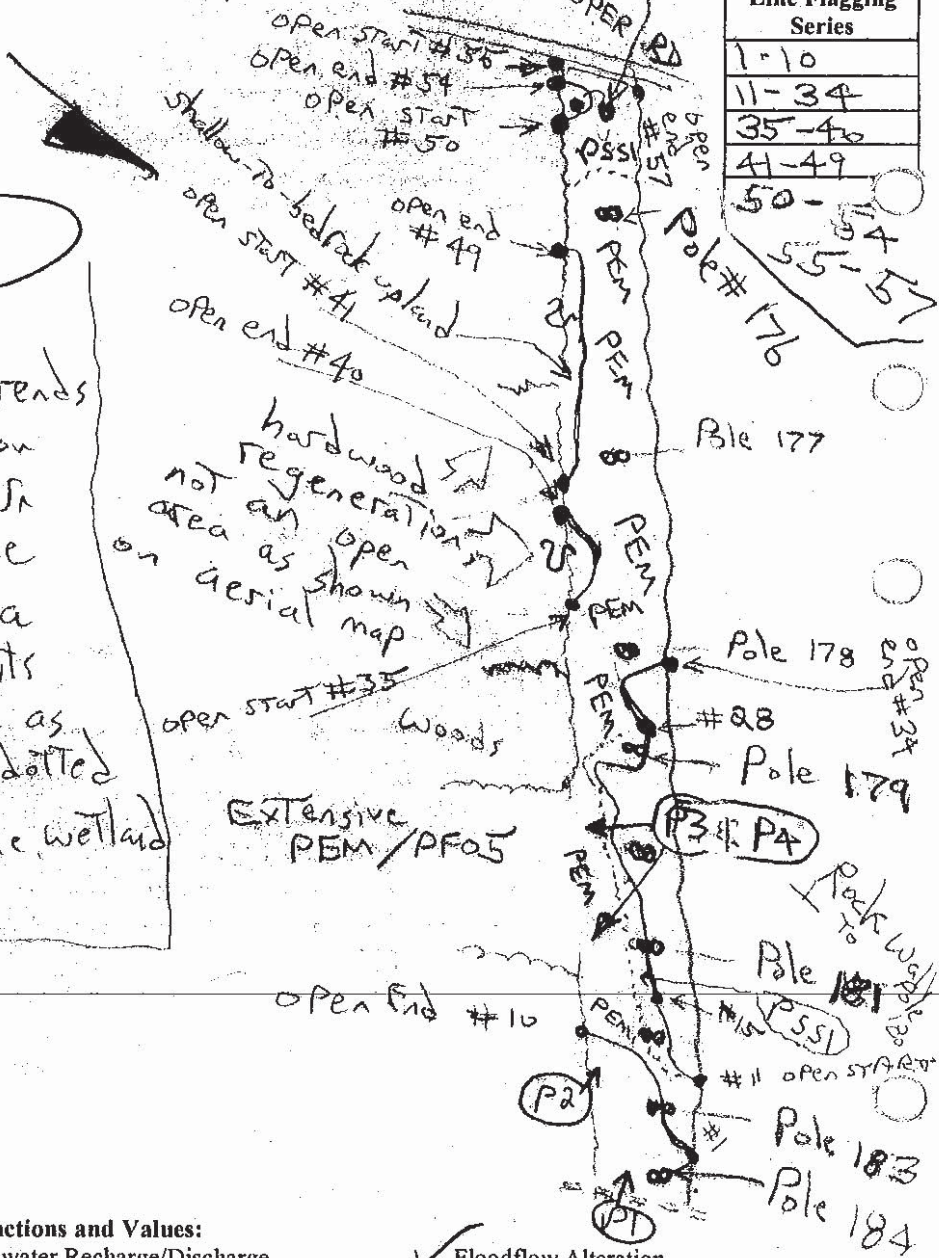 Line Flagging
Series
1-10
11-34
35-40
41-49
50-54
55-57
open start #50
open end #54
open start
#56
RD
PSS1
open
end
#57
shallow-to-bedrock upland
open start #41
open end
#49
PEM
Pole #176
open end #40
PEM
hardwood
regeneration
not an open
area as shown
on aerial map
Pole 177
PEM
PEM
open start #35
Woods
PEM
Pole 178
open
end #34
#28
Pole 179
as
dotted
wetland
Extensive
PEM/PF05
P3 & P4
PEM
Rock Wall
Pole 181
open End #10
PEM
#15
PSS1
#11 open START
P2
#1
Pole 183
Pole 184
P1
Functions and Values:
water Recharge/Discharge
Floodflow Alteration